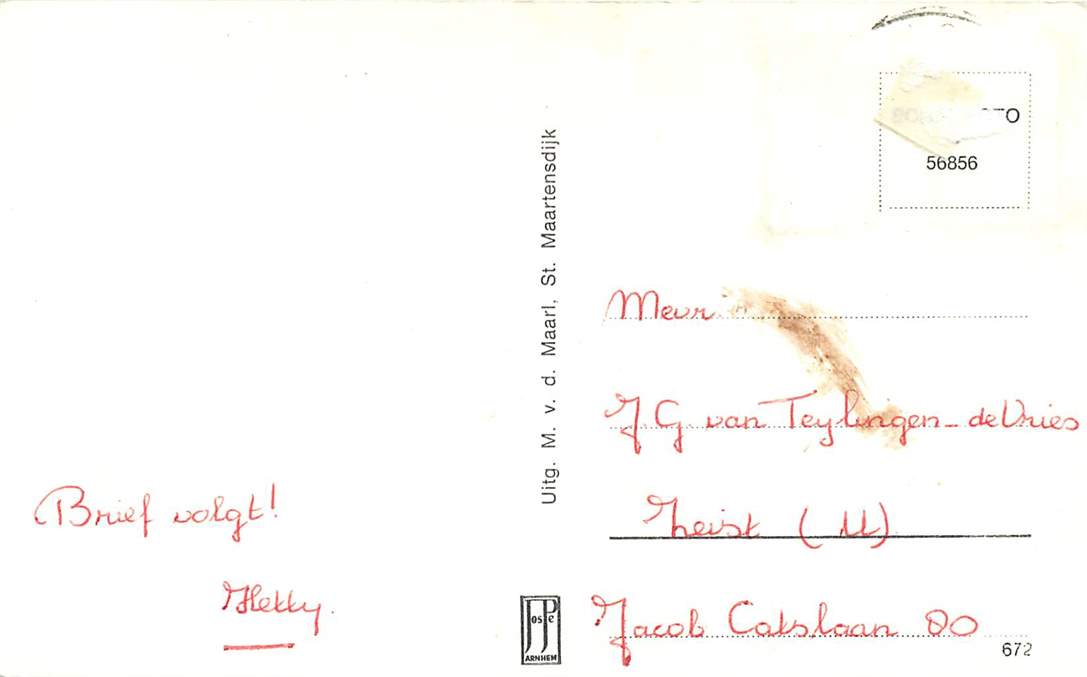 56856
Uitg. M. v. d. Maarl, St. Maartensdijk
Mevr
J G van Teylingen - de Vries
Zeist (U)
Jacob Catslaan 80
Brief volgt!
JosPe
ARNHEM
672